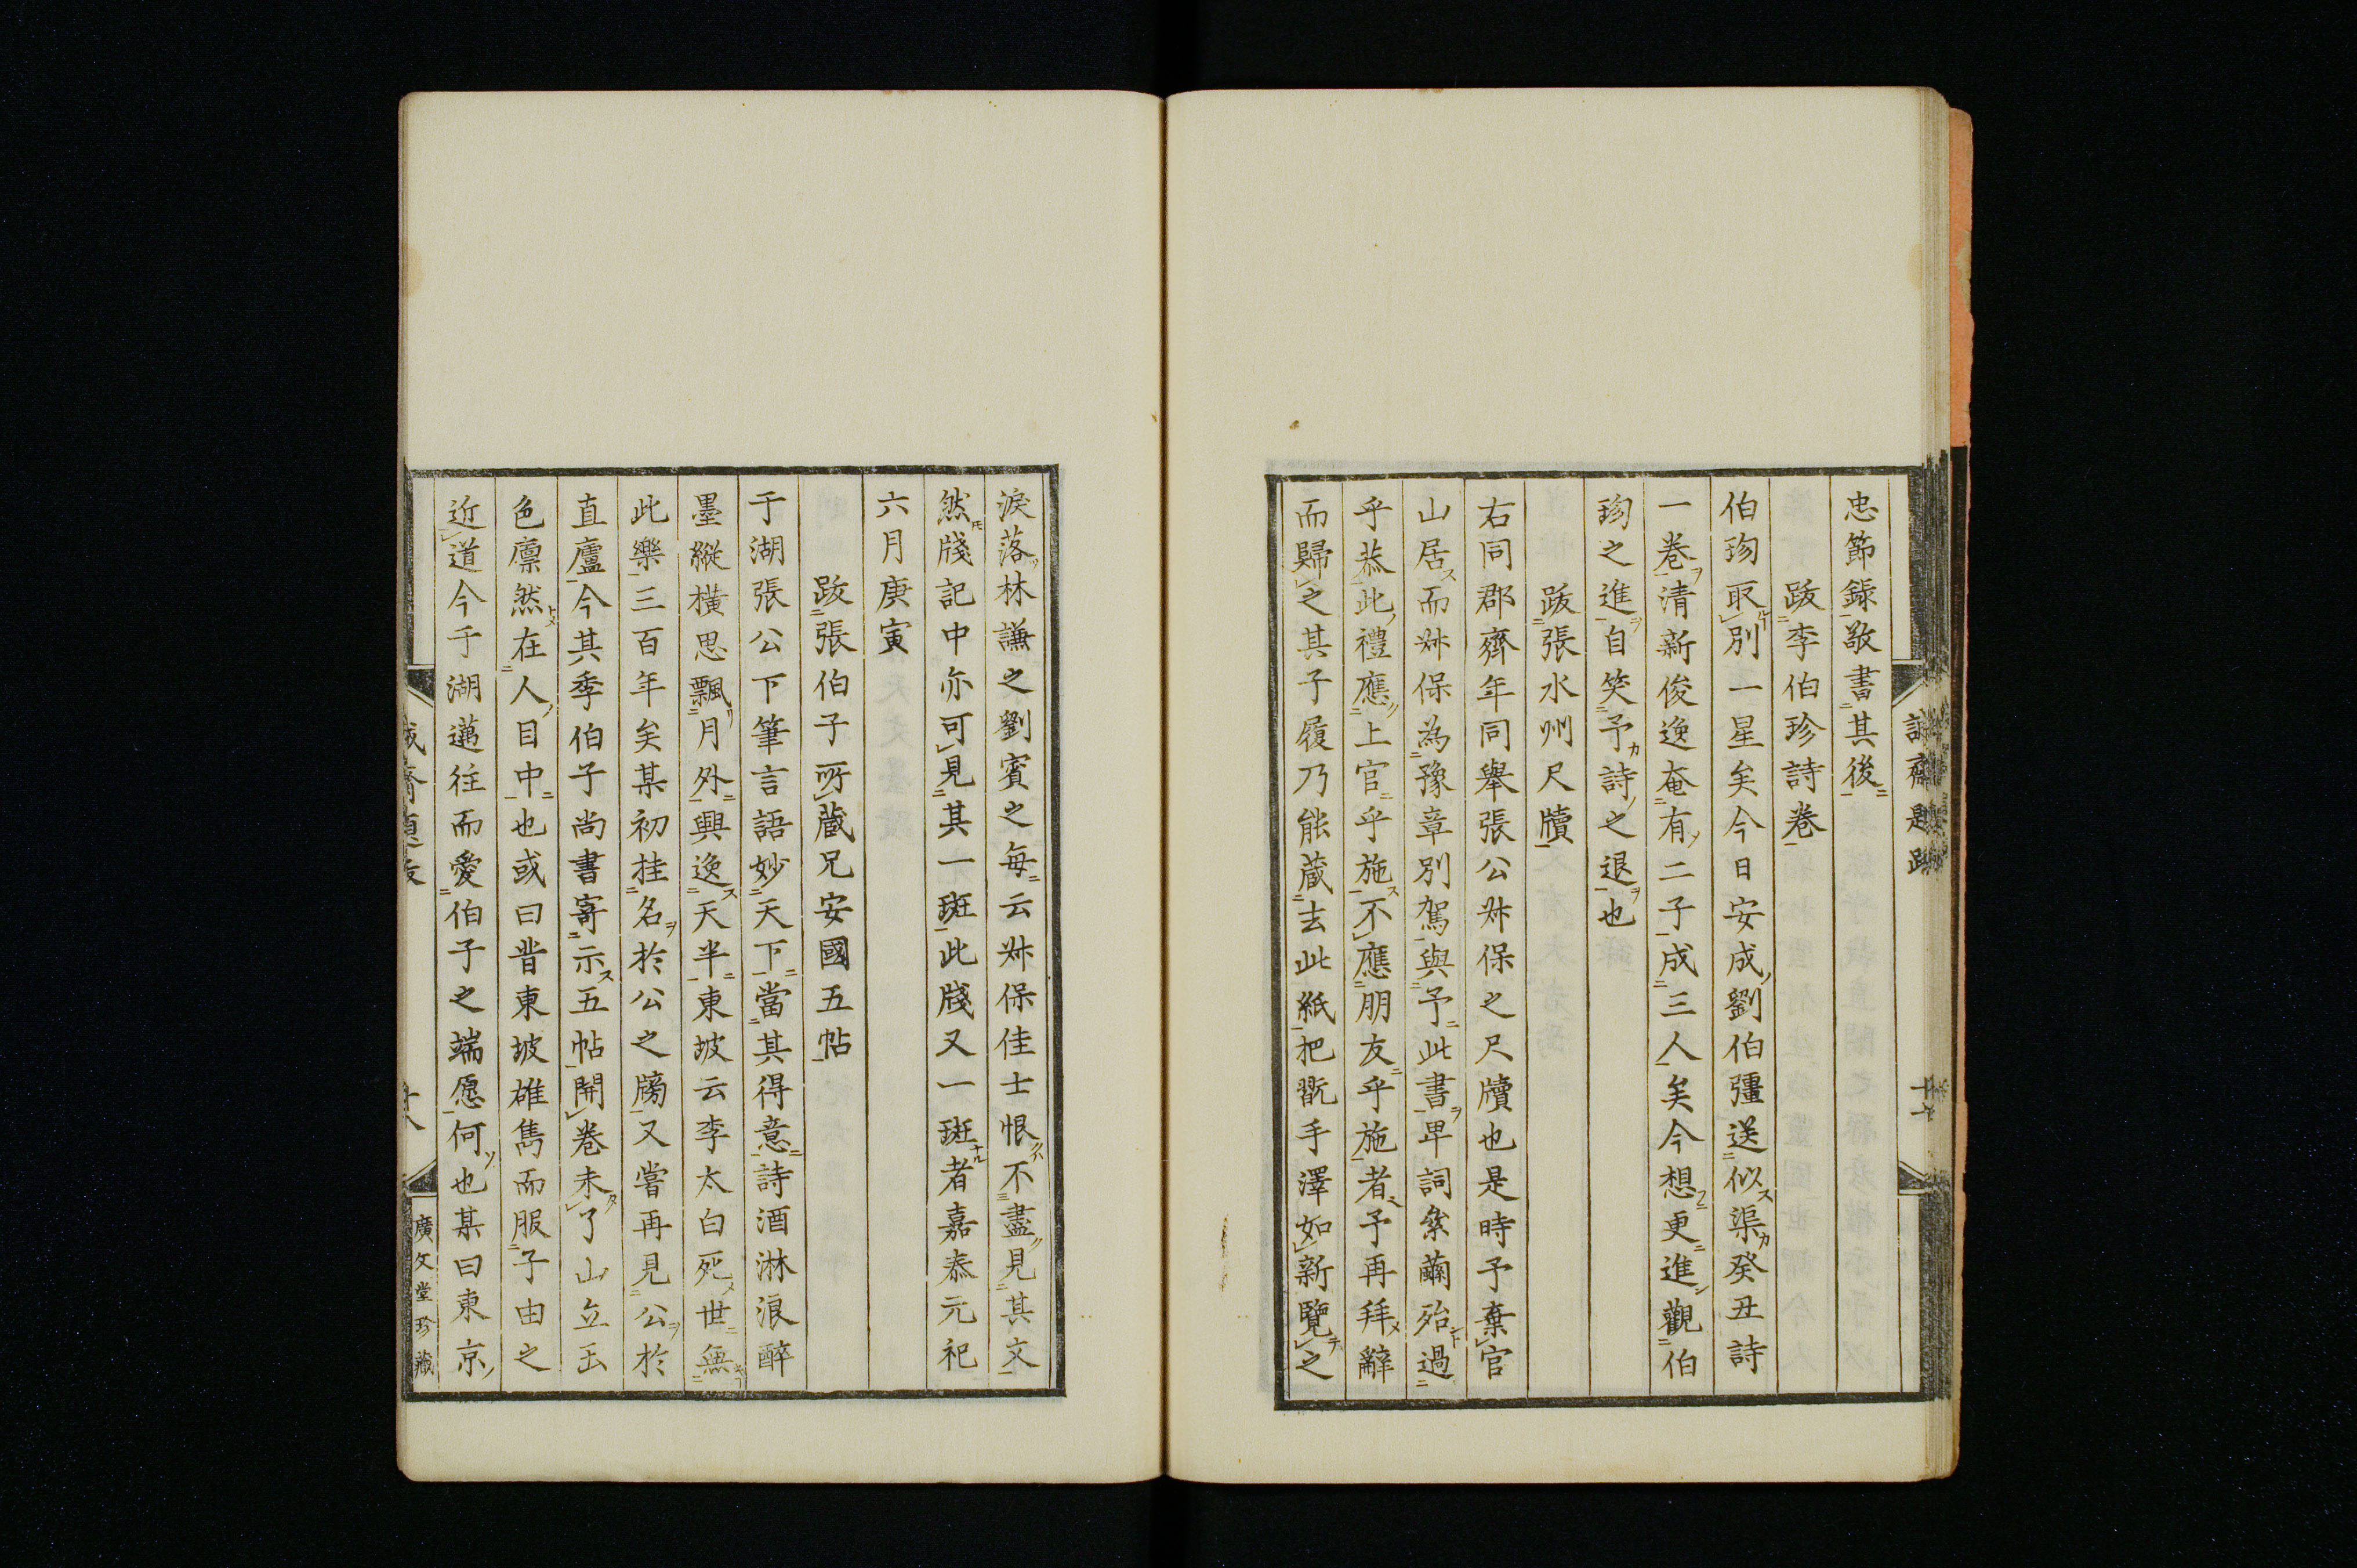 忠節錄敬書其後
跋李伯珍詩卷
伯珎取別一星矣今日安成劉伯彊送似渠癸丑詩
一卷清新俊逸奄有二子成三人矣今想更進觀伯
珎之進自笑予詩之退也
跋張水州尺牘
右同郡齊年同舉張公叔保之尺牘也是時予棄官
山居而叔保為豫章別駕與予此書卑詞絫繭殆過
乎恭此禮應上官乎施不應朋友乎施者予再拜辭
而歸之其子履乃能蔵去此紙把翫手澤如新覽之
淚落林謙之劉賓之每云叔保佳士恨不盡見其文
然牋記中亦可見其一斑此牋又一斑者嘉泰元祀
六月庚寅
跋張伯子所蔵兄安國五帖
于湖張公下筆言語妙天下當其得意詩酒淋浪醉
墨縱橫思飄月外興逸天半東坡云李太白死世無
此樂三百年矣某初挂名於公之牓又嘗再見公於
直廬今其季伯子尚書寄示五帖開卷未了山立玉
色凛然在人目中也或曰昔東坡雄雋而服子由之
近道今于湖邁往而愛伯子之端愿何也某曰東京
廣文堂珍藏